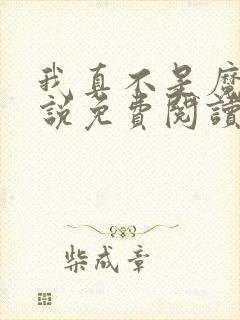 我真不是魔
说免費閱讀
柴成章